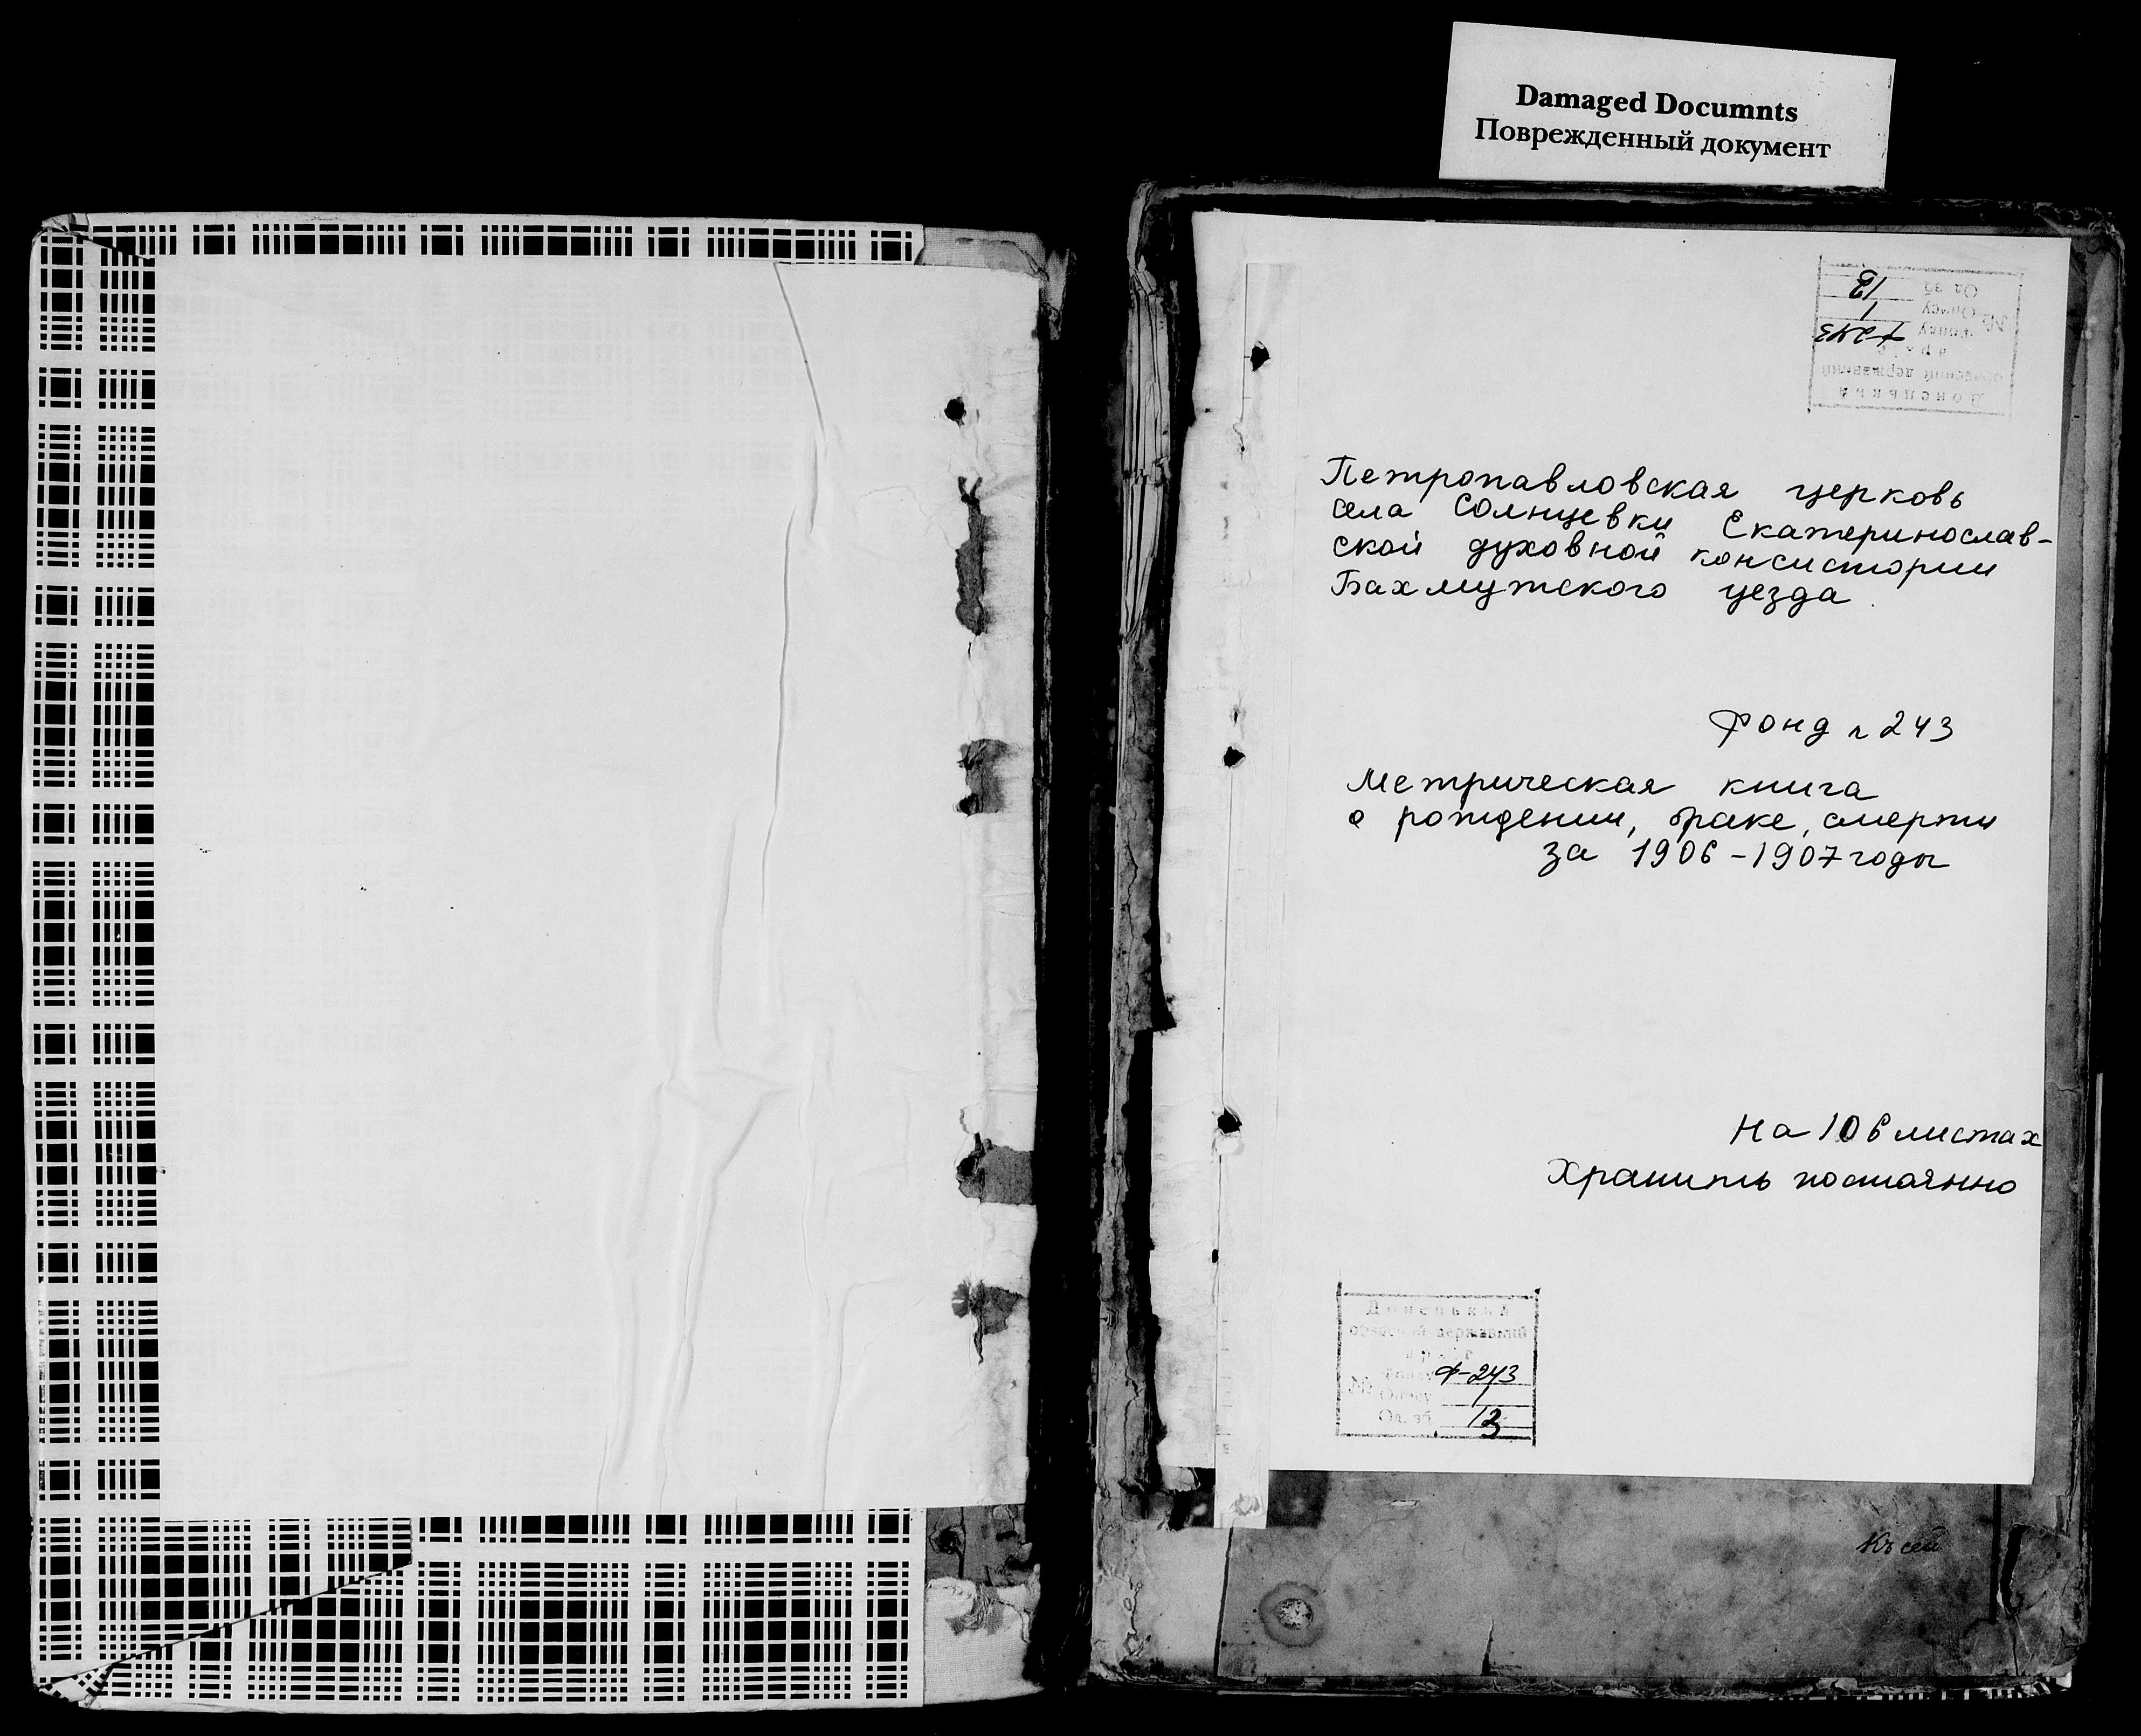 Damaged Documnts
Поврежденный документ
Петропавловская церковь
села Солнцевки Екатеринослав-
ской духовной консистории
Бахмутского уезда
Фонд 243
Метрическая книга
о рождении, браке, смерти
за 1906-1907 годы
На 106 листах
Хранить постоянно
Донецький
обласний державний
архів
№ Фонду Ф-243
Опису 1
Од. зб. 12
Къ сей